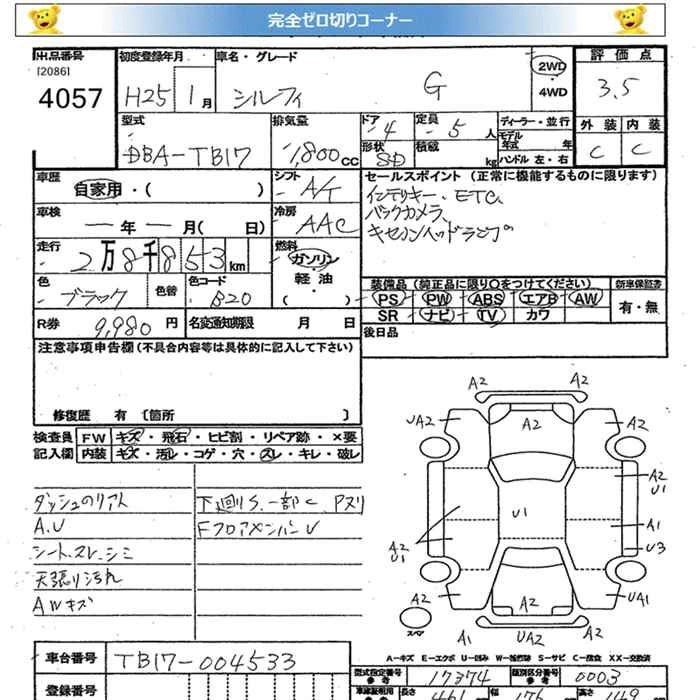 完全ゼロ切りコーナー
出品番号 初度登録年月 車名・グレード 評価点
[2086]
4057
H25 1月 シルフィ G 2WD 3.5
4WD
型式 排気量 ドア 定員 ディーラー・並行 外装 内装
DBA-TB17 1,800cc 4 5人 モデル年式 年 C C
形状 積載 kg ハンドル 左・右
SD
車歴 シフト セールスポイント(正常に機能するものに限ります)
自家用・( ) A/T インテリキー、ETC、
車検 冷房 バックカメラ
ー年ー月( 日) AAC キセノンヘッドランプ
走行 燃料
2万8千853km ガソリン
・
軽油
・
( )
色 色替 色コード 装備品(純正品に限り○をつけてください) 新車保証書
ブラック B20 PS PW ABS エアB AW 有・無
R券 9,980円 名変通知期限 月 日 SR ナビ TV カワ
後日品
注意事項申告欄(不具合内容等は具体的に記入して下さい)
修復歴 有 〔箇所 〕
検査員 FW キズ・飛石・ヒビ割・リペア跡・×要
記入欄 内装 キズ・汚レ・コゲ・穴・スレ・キレ・破レ
ダッシュのリアト 下廻りS.一部C Pズリ
A.U FフロアメンバーU
シート.スレ.シミ
天張り汚れ
AWキズ
A2 A2
UA2 A2 A2
A2
U1
U1
A2
U1 A1
U3
A2 A2 UA1
スペア A1 UA2 A2
A-キズ E-エクボ U-凹み W-補修跡 S-サビ C-腐食 XX-交換済
車台番号 TB17-004533
型式指定番号 17374 類別区分番号 0003
参考 参考
登録番号
長さ 461 幅 176 高さ 149